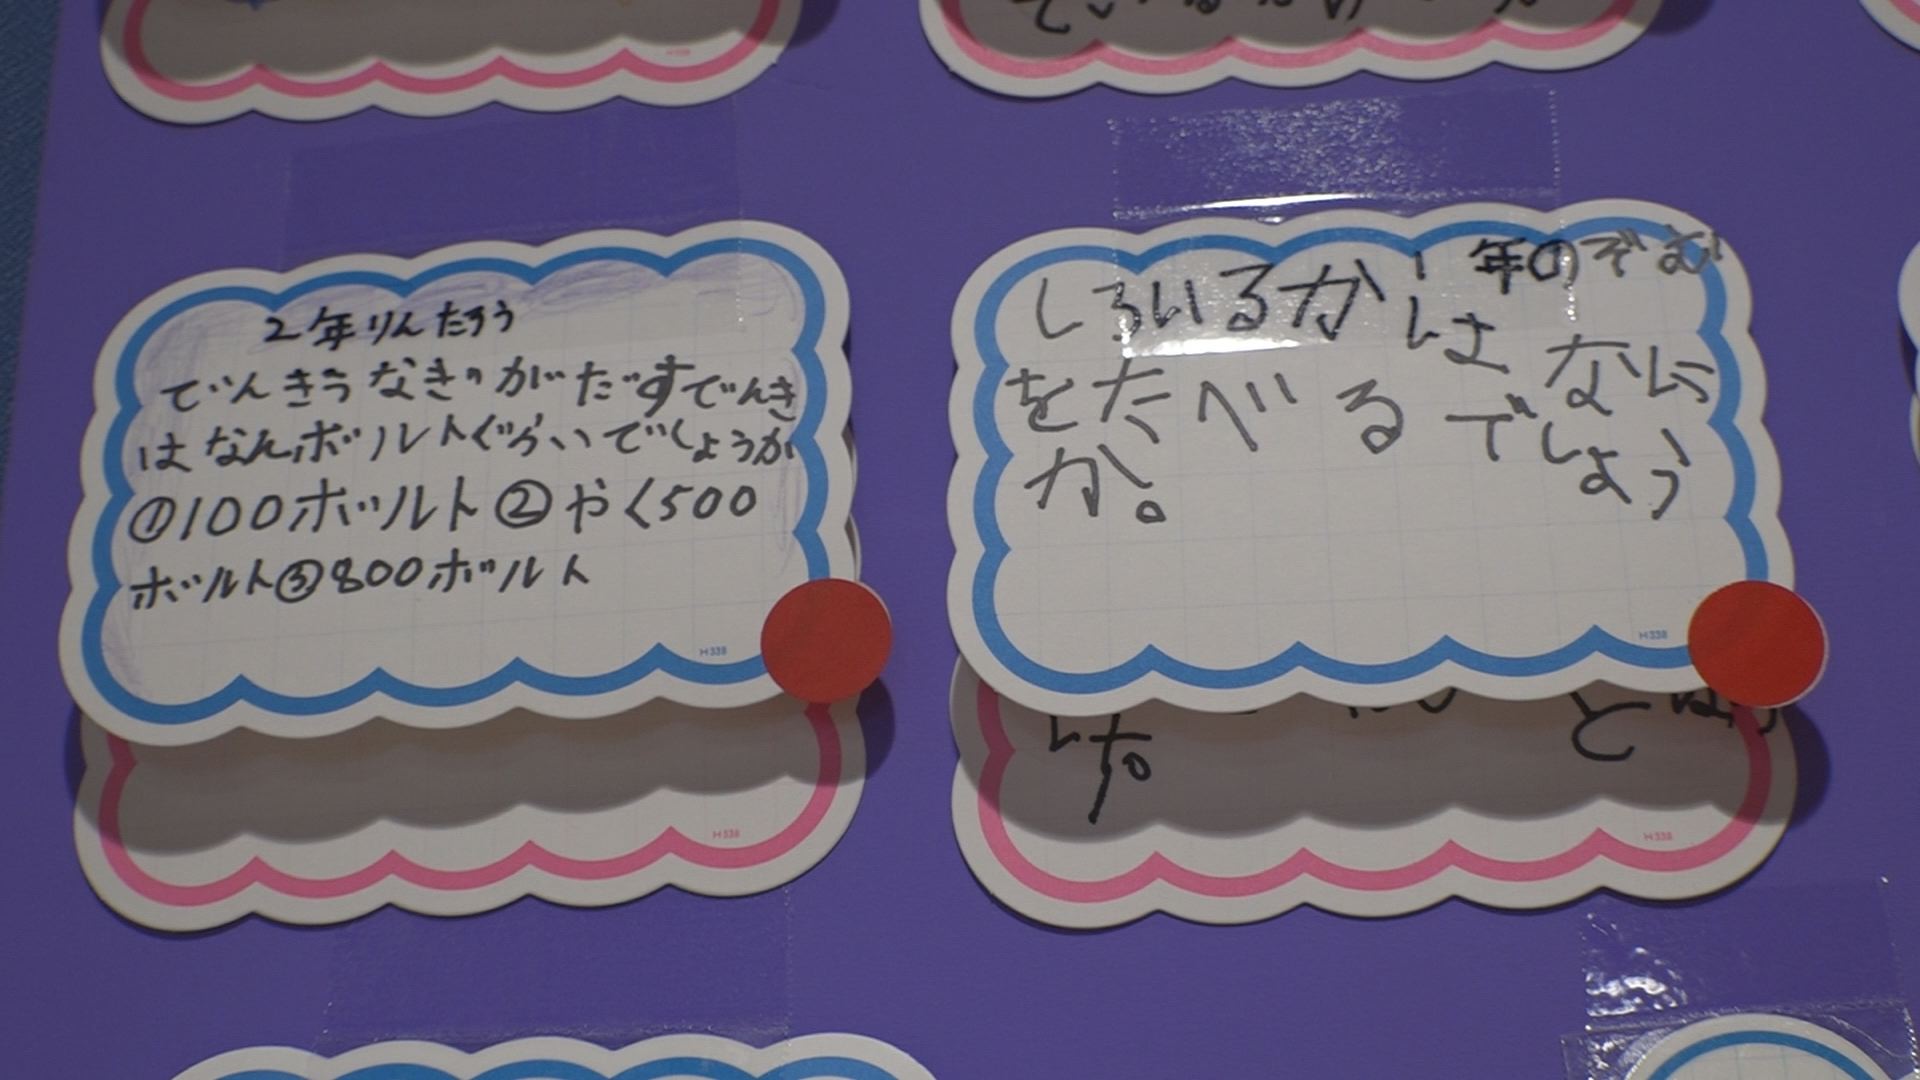 2年りんたろう
でんきうなぎのがだすでんき
はなんボルトぐらいでしょうか
①100ボルト②やく500
ボルト③800ボルト
H338
H338
1年のぞむ
しろいるかは なに
をたべるでしょう
か。
H338
H338